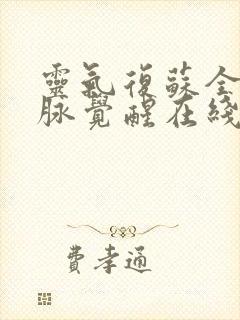 靈氣復蘇全
脉覺醒在綫
費孝通